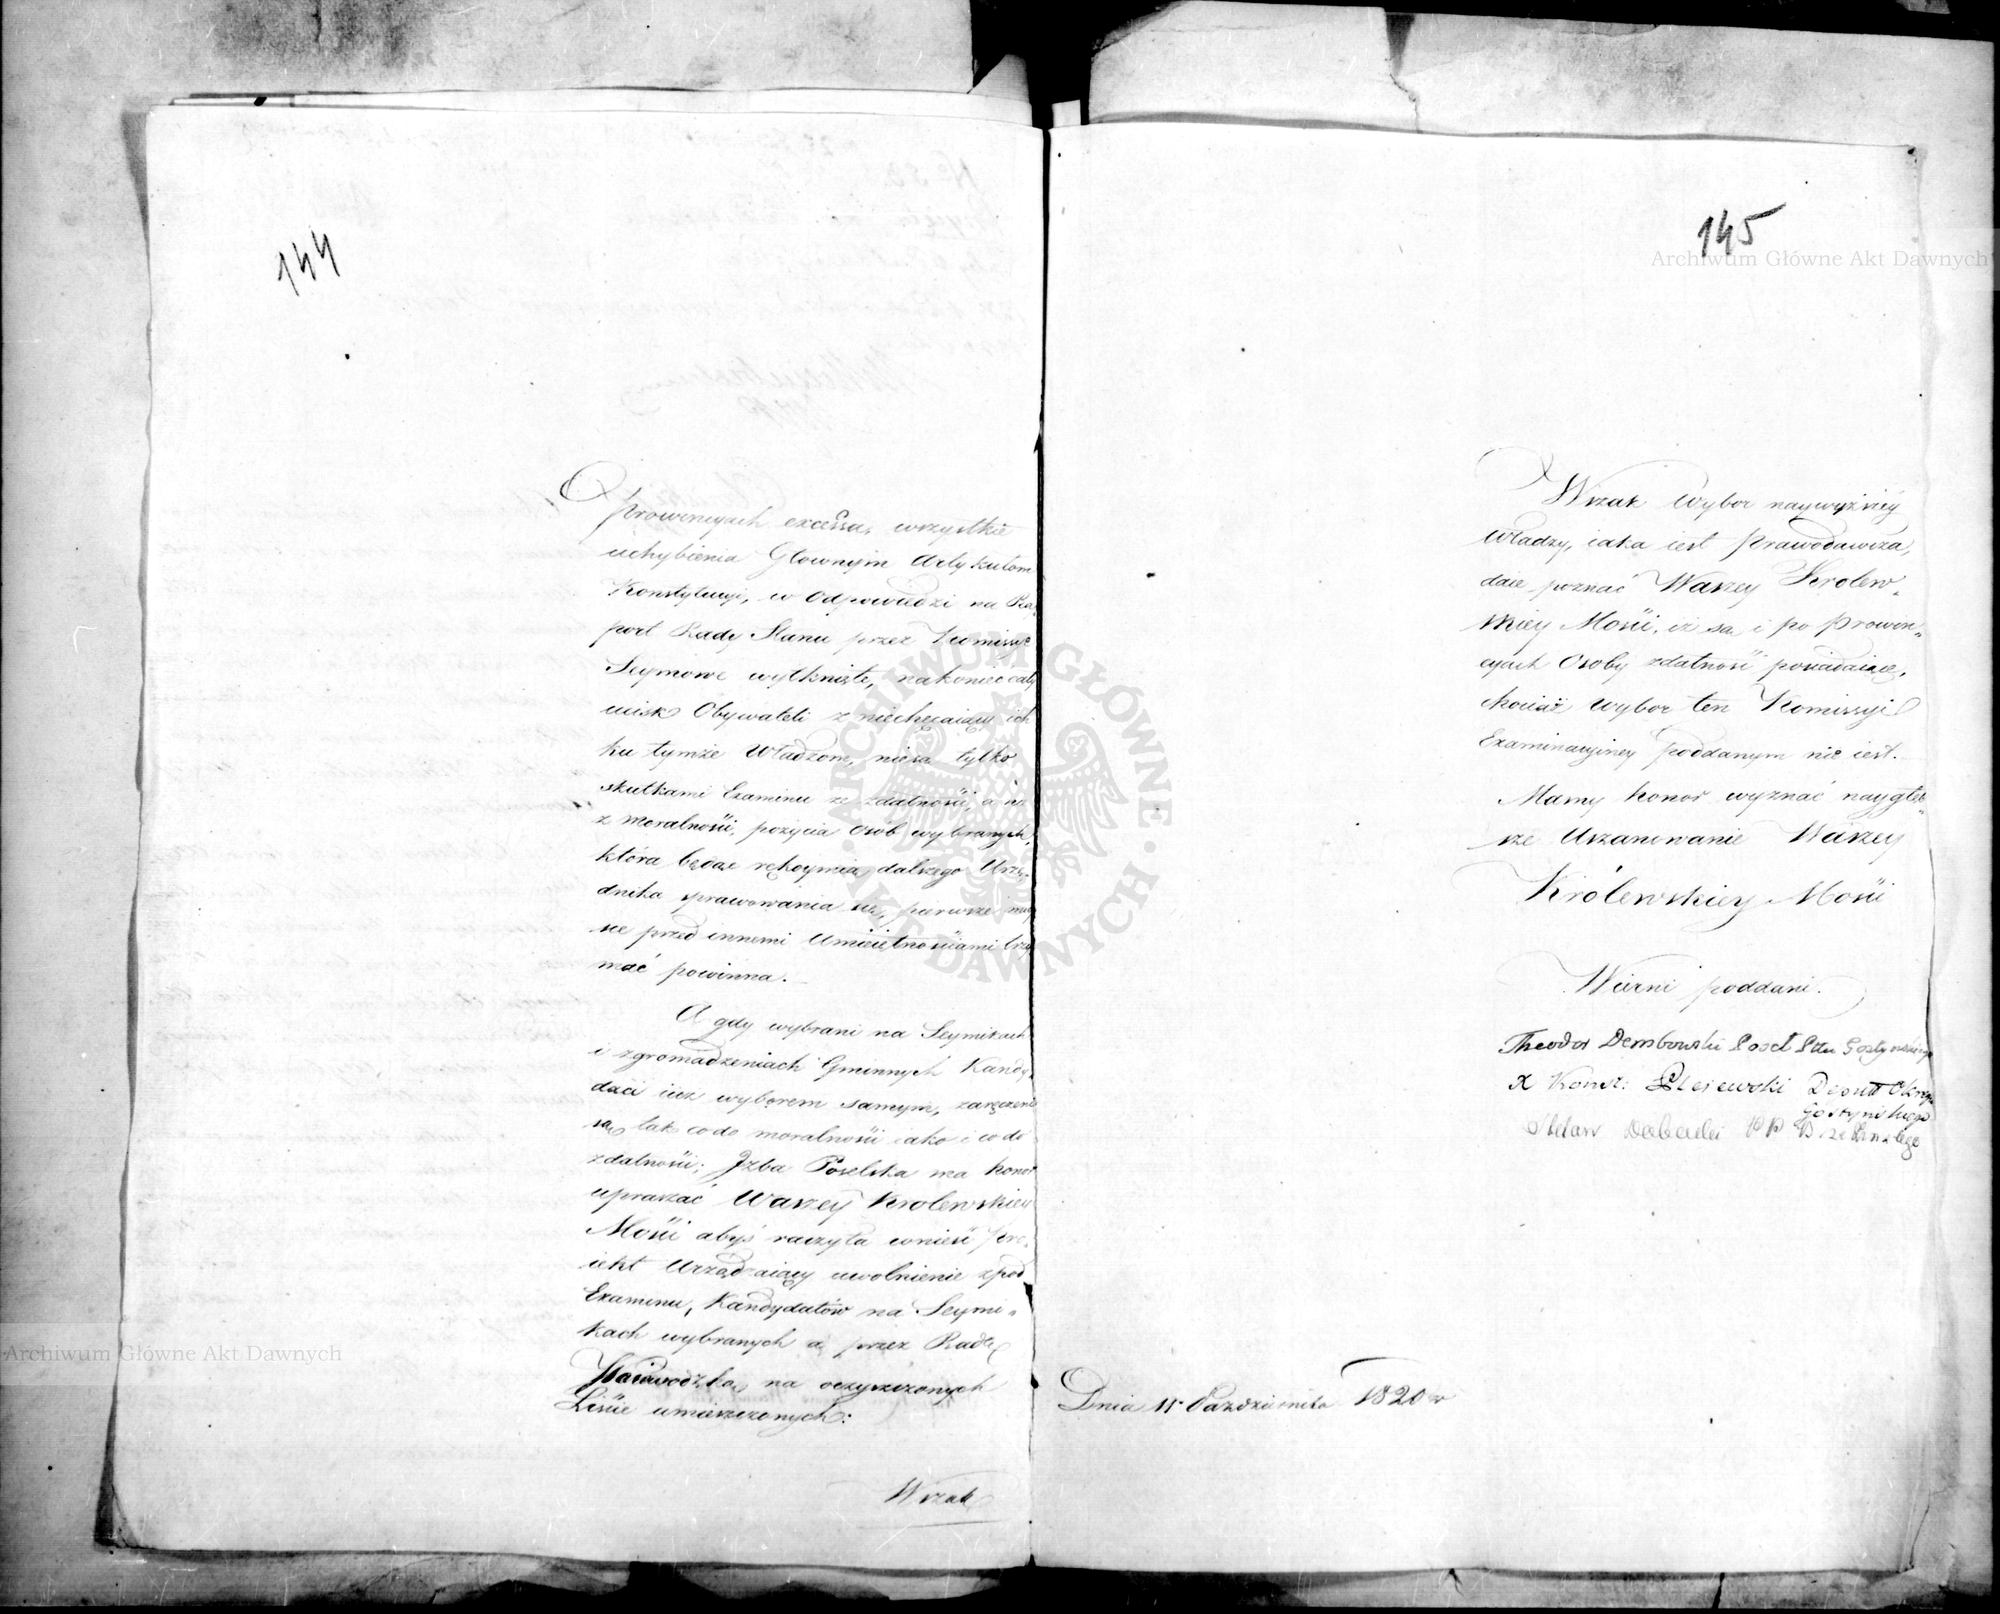 144
prowincyach excessa, wszystkie
uchybienia Głownym Artykułom
Konstytucyi, w Odpowiedzi na Ra„
port Rady Stanu przez Kommissye
Seymowe wytknięte, nakoniec cały
ucisk Obywateli zniechęcaiący ich
ku tymże Władzom, niesą tylko
skutkami Examinu ze zdatności, a nie
z moralności, pożycia Osób wybranych,
która będąc rękoymią dalszego Urzę„
dnika sprawowania się, pierwsze miey
sce przed innemi Umieiętnościami trzy
mać powinna.
A gdy wybrani na Seymikach
i zgromadzeniach Gminnych Kandy„
daci iuż wyborem samym, zaręczeni
są, tak codo moralności iako i codo
zdatności; Jzba Poselska ma honor
upraszać Waszey Krolewskiey
Mości abyś raczyła wnieść Pro„
iekt Urządzaiący uwolnienie zpod
Examinu, Kandydatów na Seymi„
kach wybranych a przez Radę
Woiewodzką na oczyszczonych
Liście umieszczonych:
Wszak
145
Wszak Wybor naywyższéy
Władzy, iaka iest Prawodawcza,
daie poznać Waszey Krolew„
skiey Mości, iż są i po Prowin„
cyach Osoby zdatność posiadaiące,
chociaż wybor ten Kommissyi
Examinacyiney poddanym nie iest.
Mamy honor wyznać naygłęb„
sze Uszanowanie Waszey
Królewskiey Mości
Wierni poddani.
Theodor Dembowski Poseł Pttu Gostynskiego
X Konst: Plejewski Deput Okręgu
Gostyńskiego
Dnia 11 Października 1820 r
Archiwum Główne Akt Dawnych
Archiwum Główne Akt Dawnych
ARCHIWUM GŁÓWNE · AKT DAWNYCH ·